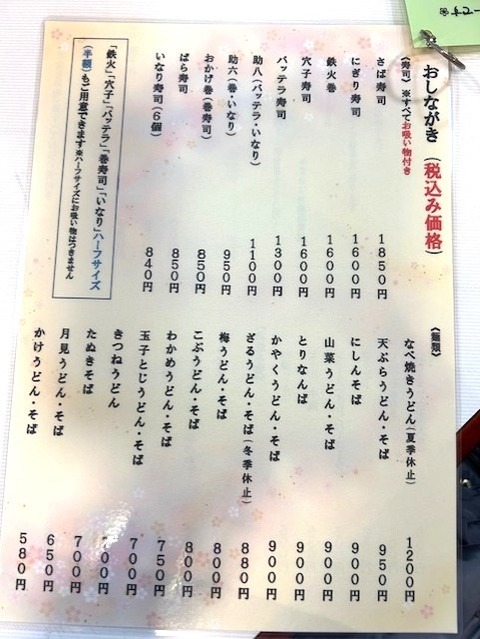 おしながき（税込み価格）
（寿司）※すべてお吸い物付き
さば寿司 1850円
にぎり寿司 1600円
鉄火巻 1600円
穴子寿司 1600円
バッテラ寿司 1300円
助八（バッテラ・いなり） 1100円
助六（巻・いなり） 950円
おかけ巻（巻寿司） 850円
ばら寿司 850円
いなり寿司（6個） 840円
「鉄火」「穴子」「バッテラ」「巻寿司」「いなり」ハーフサイズ
（半額）もご用意できます※ハーフサイズにお吸い物はつきません
（麺類）
なべ焼きうどん（夏季休止） 1200円
天ぷらうどん・そば 950円
にしんそば 900円
山菜うどん・そば 900円
とりなんば 900円
かやくうどん・そば 900円
ざるうどん・そば（冬季休止） 880円
梅うどん・そば 800円
こぶうどん・そば 800円
わかめうどん・そば 750円
玉子とじうどん・そば 700円
きつねうどん 700円
たぬきそば 700円
月見うどん・そば 650円
かけうどん・そば 580円